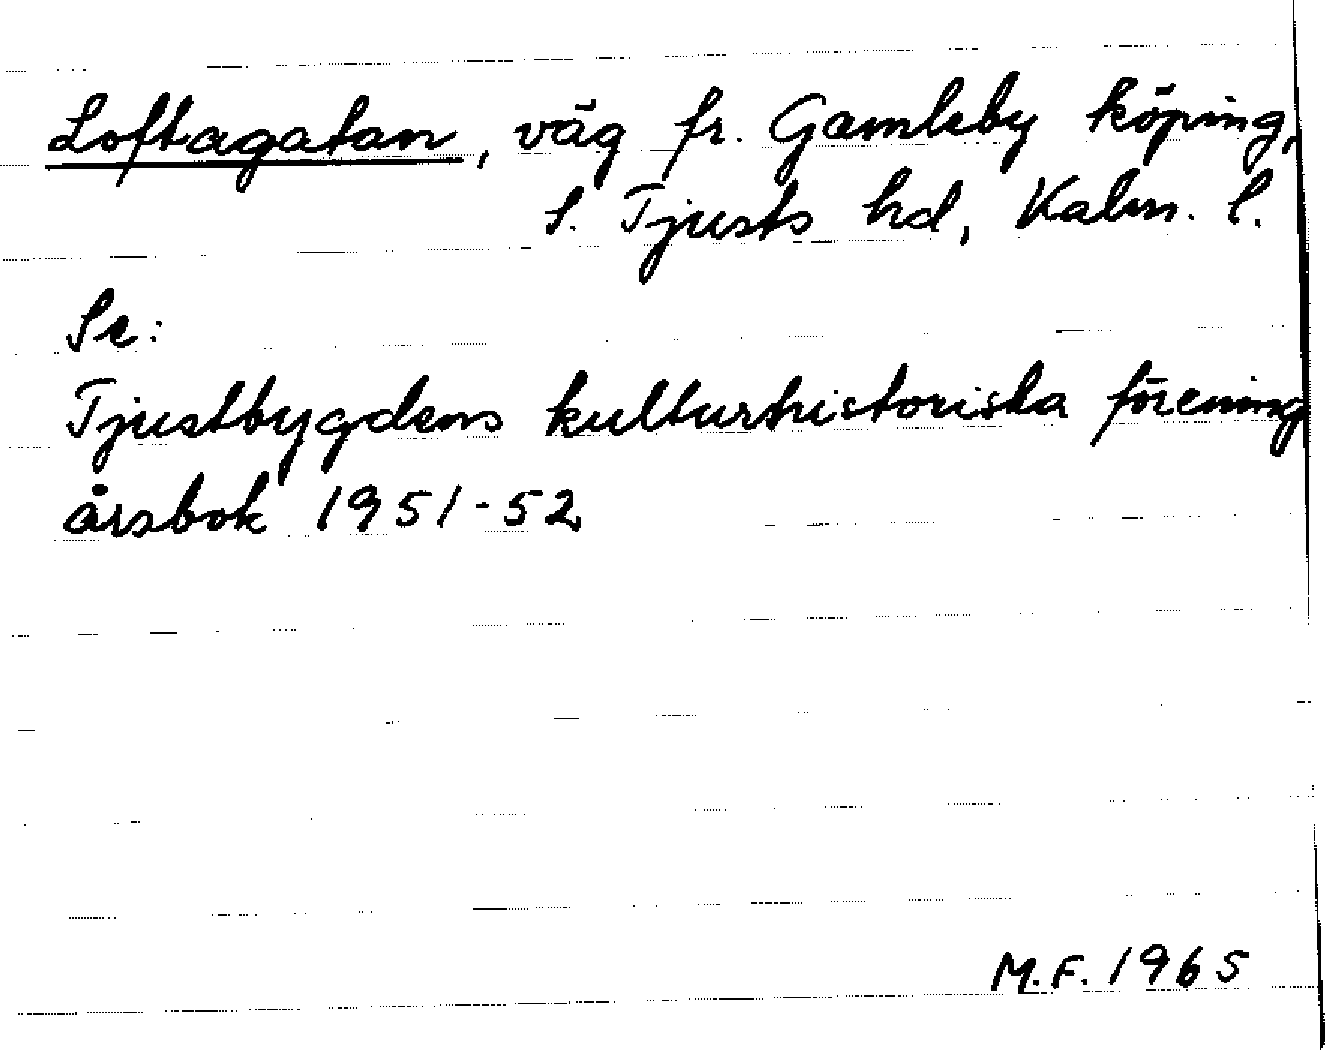 Loftagatan, väg fr. Gamleby köping,
S. Tjusts hd, Kalm. l.
Se:
Tjustbygdens kulturhistoriska förening
årsbok 1951-52
M.F. 1965